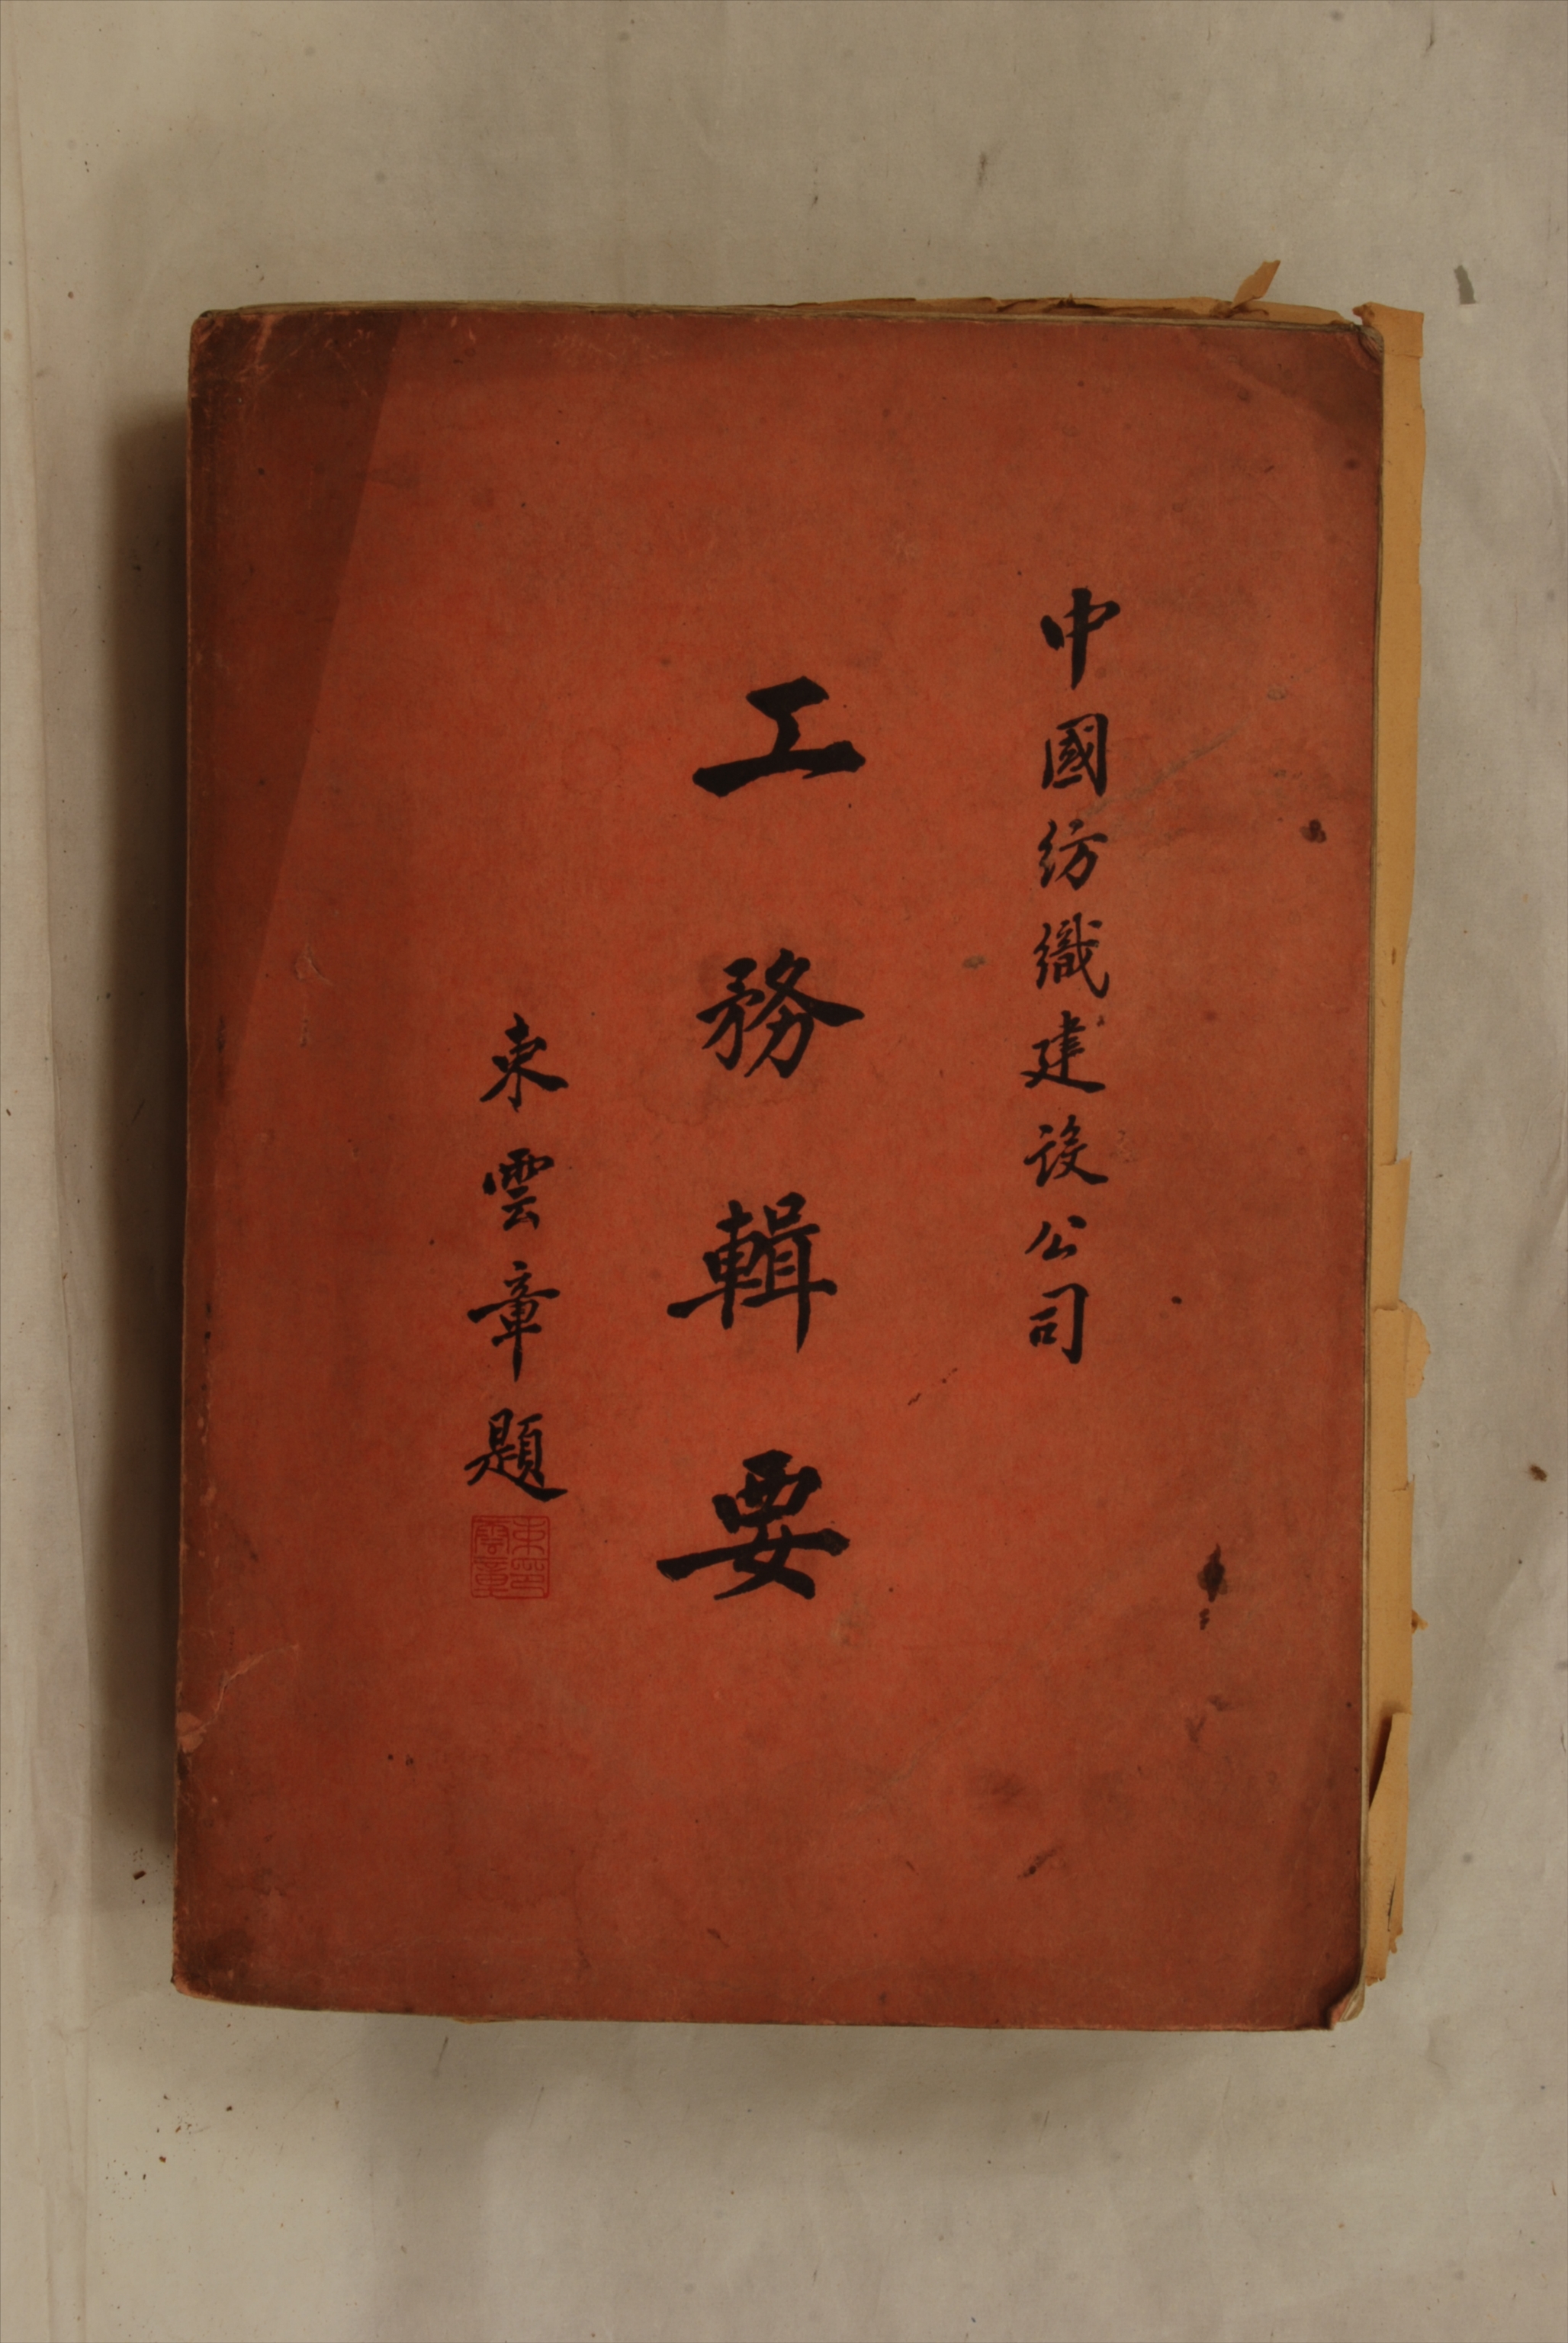 中國紡織建設公司
工務輯要
束雲章題
束雲章印